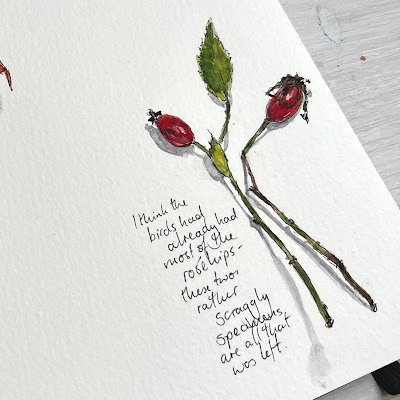 I think the
birds had
already had
most of the
rosehips -
these two
rather
scraggly
specimens
are all that
was left.